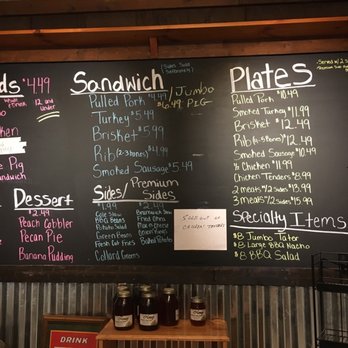 ds $4.49
12 and
Under
Pig
Sandwich
Dessert
$2.49
Peach Cobbler
Pecan Pie
Banana Pudding
Sandwich
Pulled Pork $4.49
Turkey $5.49
Brisket $5.99
Rib (2-3 bones) $4.99
Smoked Sausage 5.49
Jumbo
$6.49 PIG
Sides/ Premium
Sides
$1.99
Cole Slaw
BBQ Beans
Potato Salad
Green Beans
Fresh Cut Fries
Collard Greens
$2.49
Brunswick Stew
Fried Okra
Mac n Cheese
Onion Rings
Baked Potato
Plates
Pulled Pork $10.49
Smoked Turkey $11.99
Brisket $12.49
Rib (6-5 bones) $12.49
Smoked Sausage $10.49
½ Chicken $11.99
Chicken Tenders $8.99
2 meats/2 sides $13.99
3 meats/2 sides $15.99
Specialty Items
$8 Jumbo Tater
$8 Large BBQ Nacho
$8 BBQ Salad
DRINK